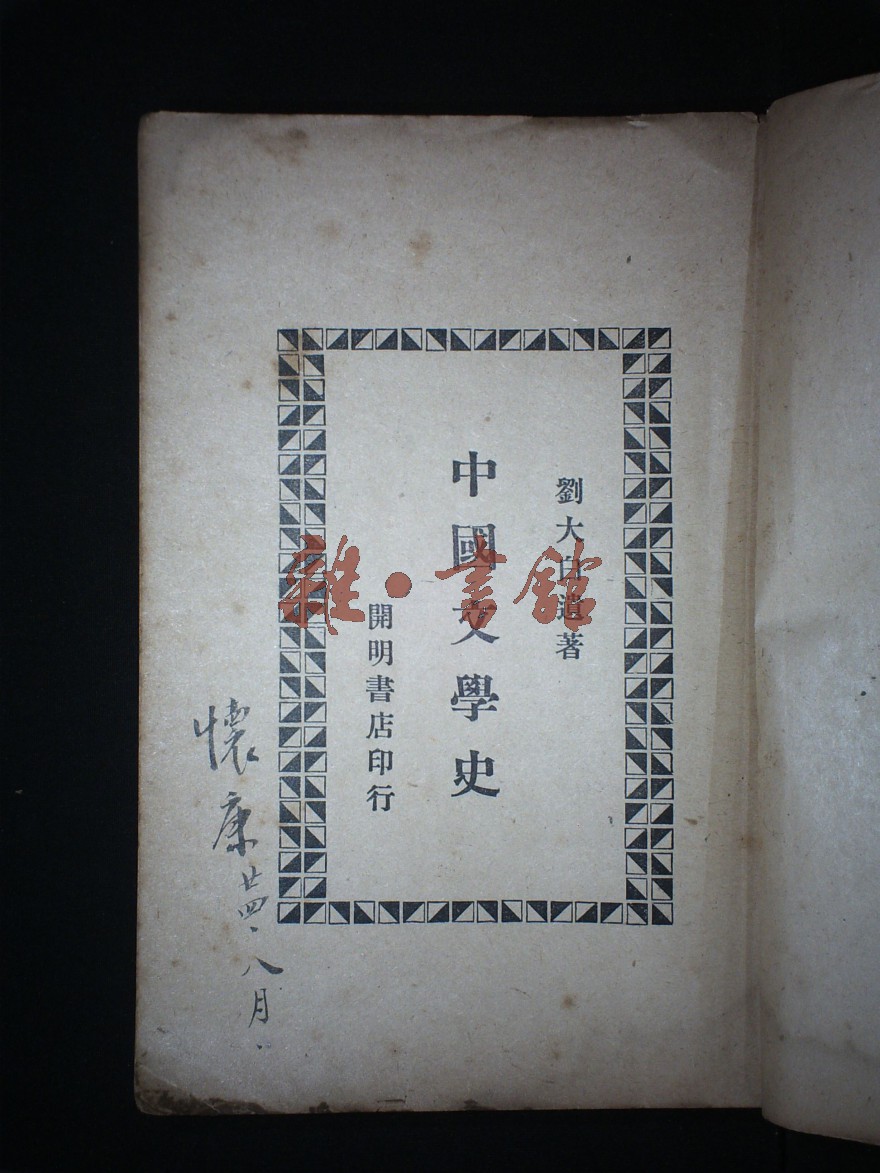 劉大白遺著
中國文學史
開明書店印行
懷康 廿四、八月
雜·書館